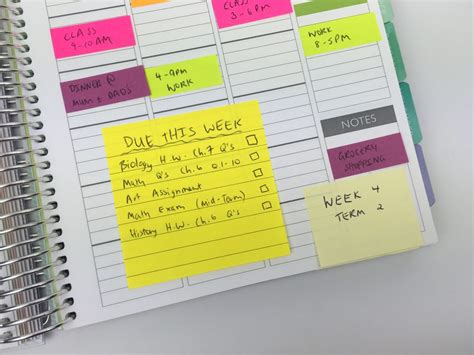 CLASS
9-10AM
CLASS
3-6PM
WORK
8-5PM
DINNER @
MUM & DAD'S
4-9PM
WORK
DUE THIS WEEK
Biology H.W. Ch.7 Q's
Math Q's Ch.6 Q.1-10
Art Assignment
Math Exam (Mid-Term)
History H.W. Ch.6 Q's
NOTES
GROCERY
SHOPPING
WEEK 4
TERM 2